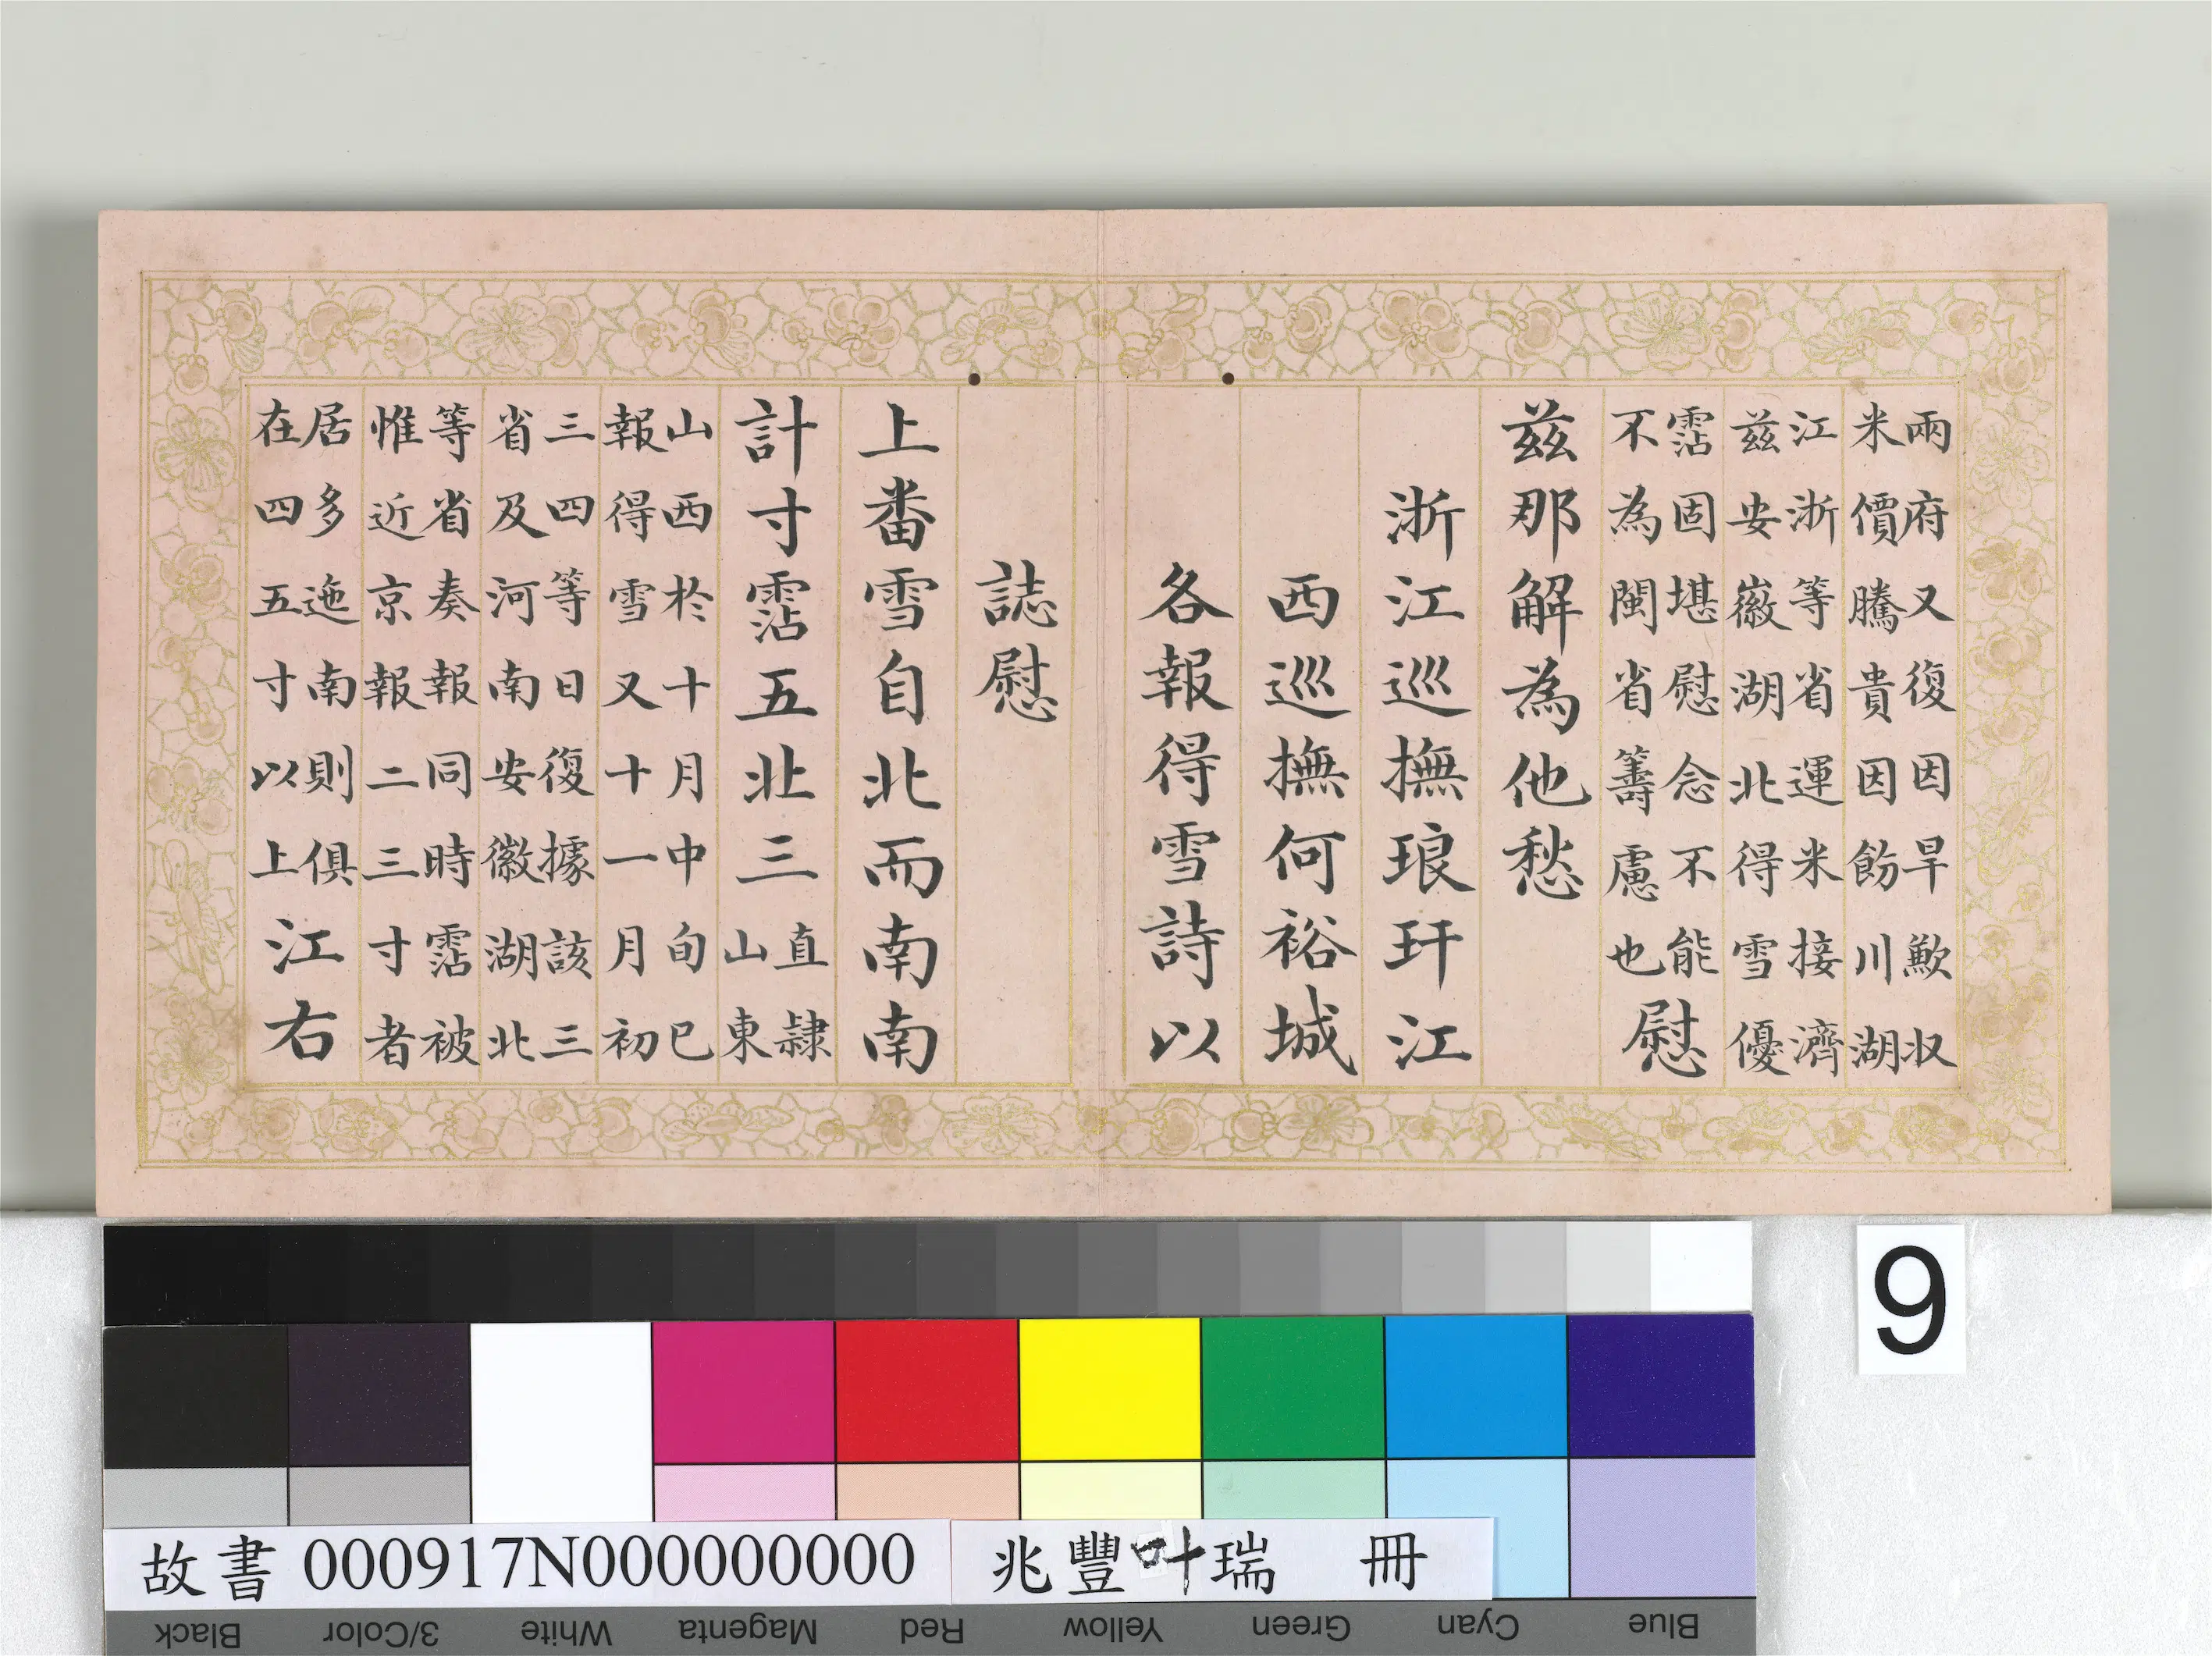 兩府又復因旱歉収
米價騰貴因飭川湖
江浙等省運米接濟
兹安徽湖北得雪優
霑固堪慰念不能
不為閩省籌慮也
慰
兹那解為他愁
浙江巡撫琅玕江
西巡撫何裕城
各報得雪詩以
誌慰
上番雪自北而南南
計寸霑五北三
直隸
山東
山西於十月中旬已
報得雪又十一月初
三四等日復據該三
省及河南安徽湖北
等省奏報同時霑被
惟近京報二三寸者
居多迤南則俱
在四五寸以上
江右
9
故書 000917N000000000
兆豐叶瑞 冊
Black 3/Color White Magenta Red Yellow Green Cyan Blue